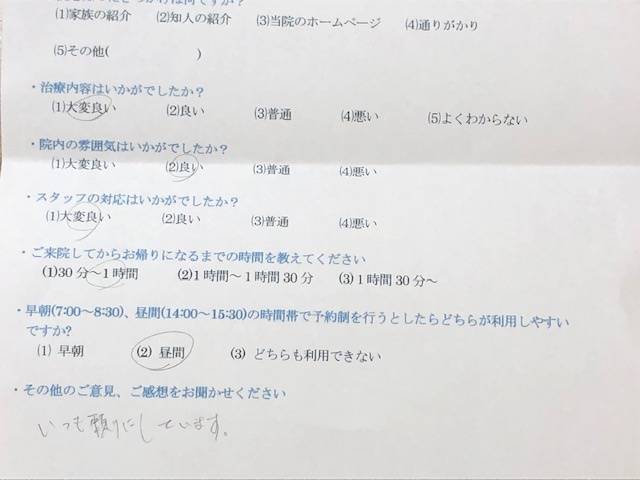 (1)家族の紹介 (2)知人の紹介 (3)当院のホームページ (4)通りがかり
(5)その他( )
・治療内容はいかがでしたか？
(1)大変良い (2)良い (3)普通 (4)悪い (5)よくわからない
・院内の雰囲気はいかがでしたか？
(1)大変良い (2)良い (3)普通 (4)悪い
・スタッフの対応はいかがでしたか？
(1)大変良い (2)良い (3)普通 (4)悪い
・ご来院してからお帰りになるまでの時間を教えてください
(1)30分～1時間 (2)1時間～1時間30分 (3)1時間30分～
・早朝(7:00～8:30)、昼間(14:00～15:30)の時間帯で予約制を行うとしたらどちらが利用しやすい
ですか?
(1) 早朝 (2) 昼間 (3) どちらも利用できない
・その他のご意見、ご感想をお聞かせください
いつも頼りにしています。